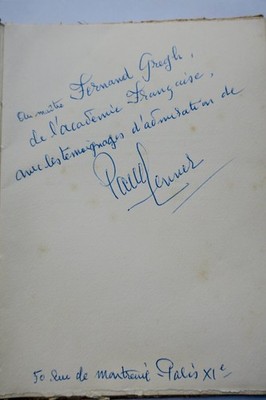 Au maître Fernand Gregh,
de l'académie Française,
avec les témoignages d'admiration de
Paul
50 rue de Montreuil Paris XIe